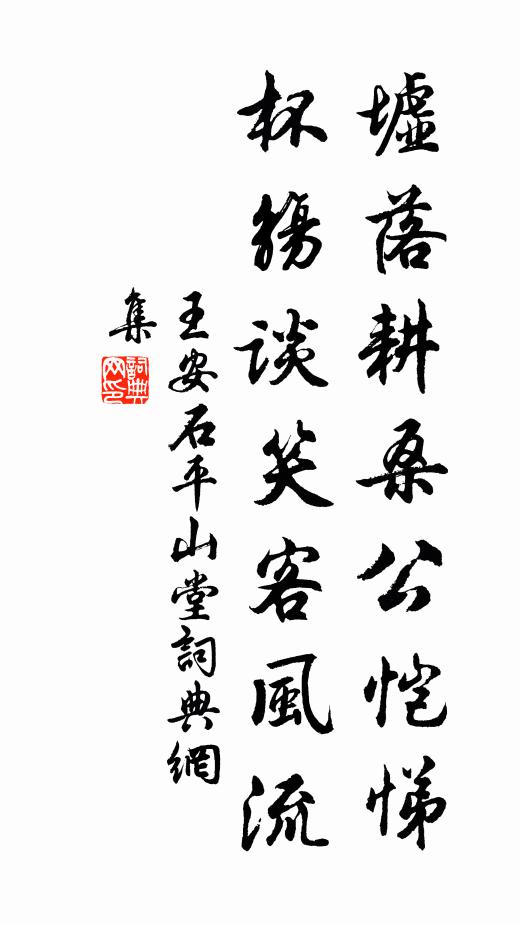 墟落耕桑公恺悌
杯觴談笑客風流
王安石平山堂詞典網
集
詞典網印